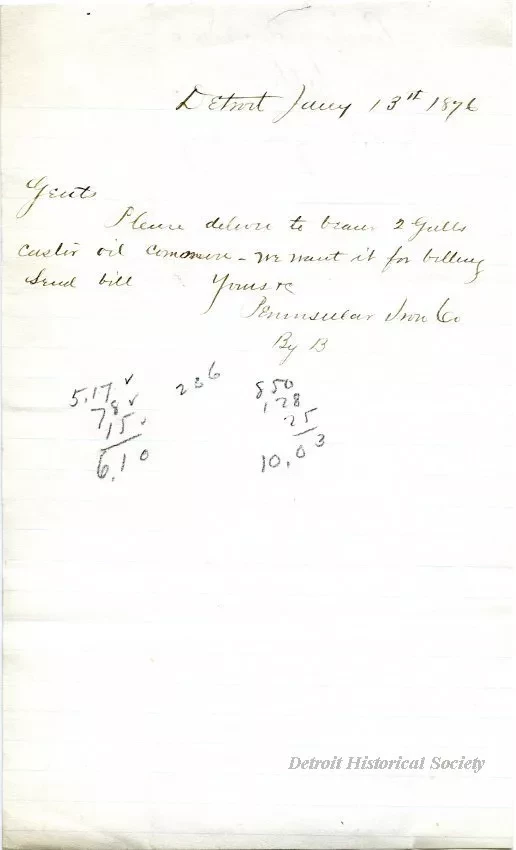 Detroit Jany 13st 1876
Gents
Please deliver to bearer 2 Galls
castor oil common - we want it for belting
Send bill Yours &c
Peninsular Iron Co
By B
5.17 ✓
78 ✓
15 ✓
6.10
236
850
128
25
10.03
Detroit Historical Society